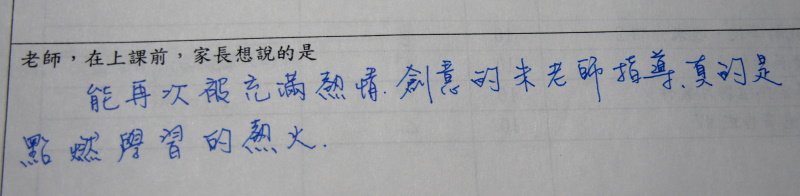 老師，在上課前，家長想說的是
能再次被充滿熱情.創意的朱老師指導、真的是
點燃學習的熱火.